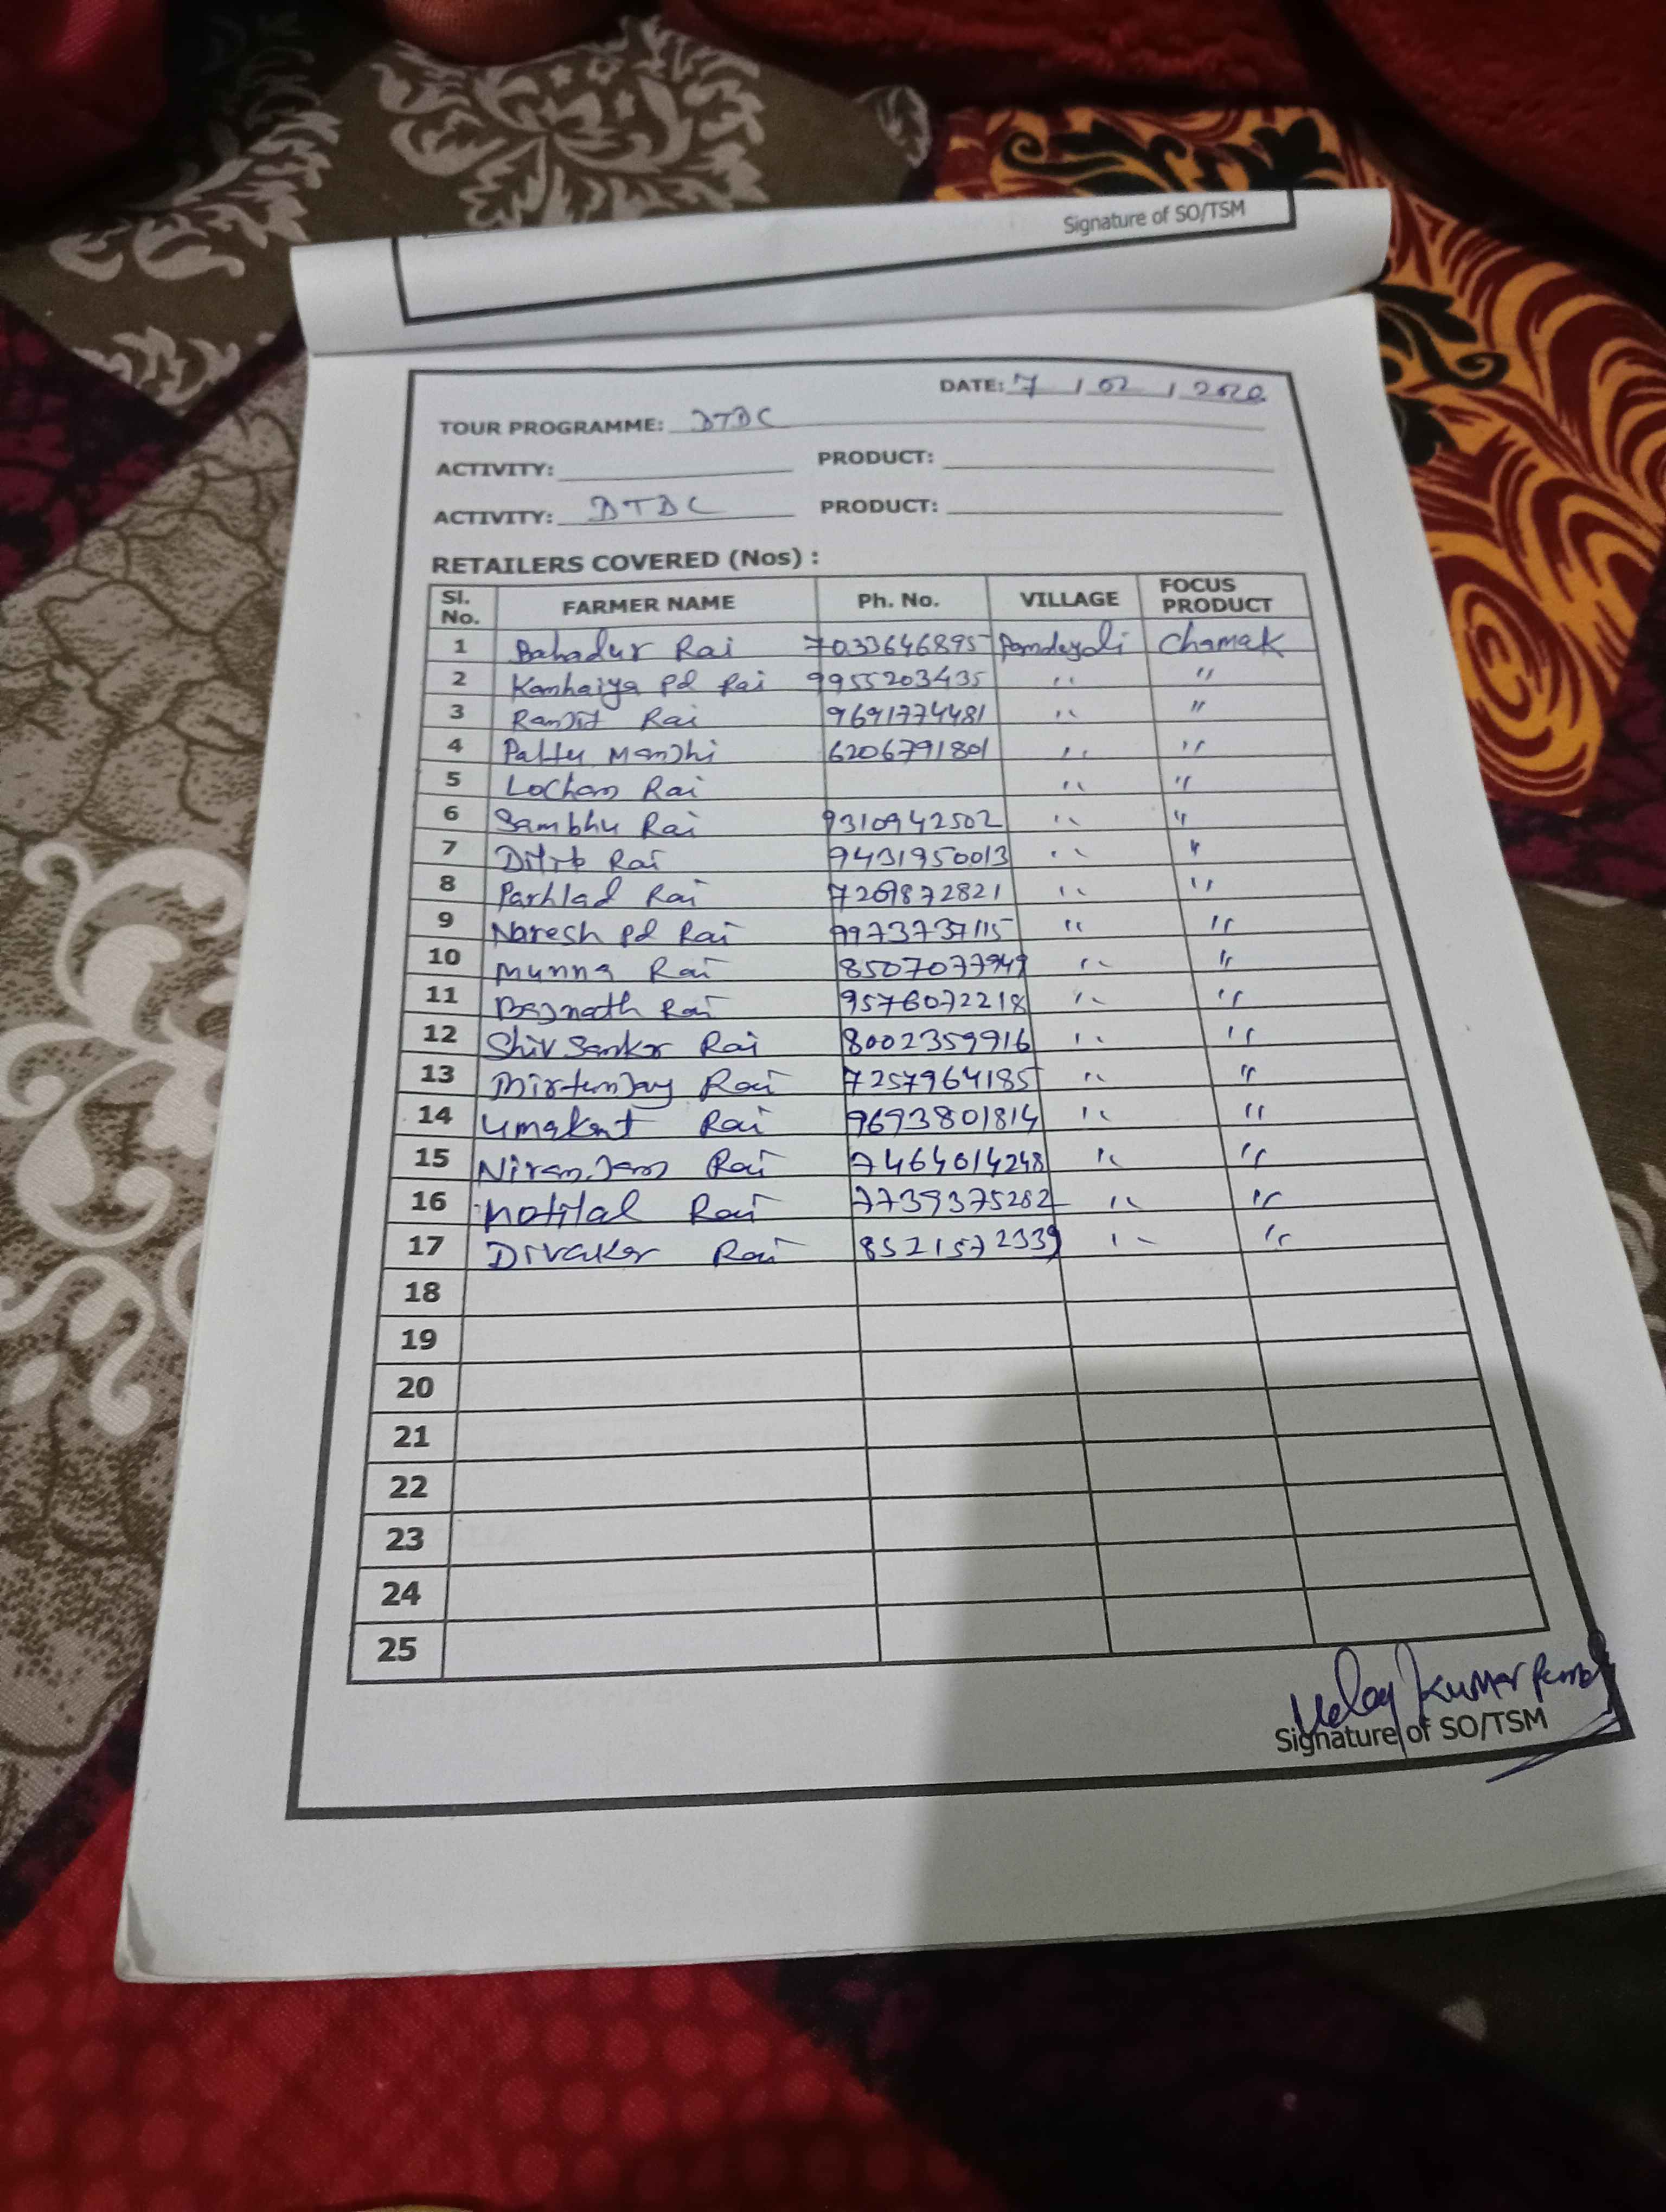 Signature of SO/TSM
DATE: 7 / 02 / 2020
TOUR PROGRAMME: DTDC
ACTIVITY: PRODUCT:
ACTIVITY: DTDC PRODUCT:
RETAILERS COVERED (Nos) :
Sl. No. FARMER NAME Ph. No. VILLAGE FOCUS PRODUCT
1 Bahadur Rai 7033646895 Pandeydi Chamak
2 Kanhaiya Pd Rai 9955203435 " "
3 Ranjit Rai 9691774481 " "
4 Paltu Manjhi 6206791801 " "
5 Lochan Rai " "
6 Sambhu Rai 9310942502 " "
7 Rai 9431950013 " "
8 Parhlad Rai 7269872821 " "
9 Naresh Pd Rai 9973737115 " "
10 Munna Rai 8507077949 " "
11 Baijnath Rai 9576072218 " "
12 Shiv Sankar Rai 8002359916 " "
13 Mirtunjay Rai 7257964185 " "
14 Umakant Rai 9693801814 " "
15 Niranjan Rai 7464014248 " "
16 Motilal Rai 7739375282 " "
17 Divaker Rai 8521572339 " "
18
19
20
21
22
23
24
25
Kumar
Signature of SO/TSM